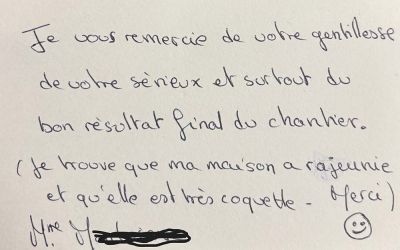 Je vous remercie de votre gentillesse
de votre sérieux et surtout du
bon résultat final du chantier.
(Je trouve que ma maison a rajeunie
et qu'elle est très coquette - Merci)
Mme